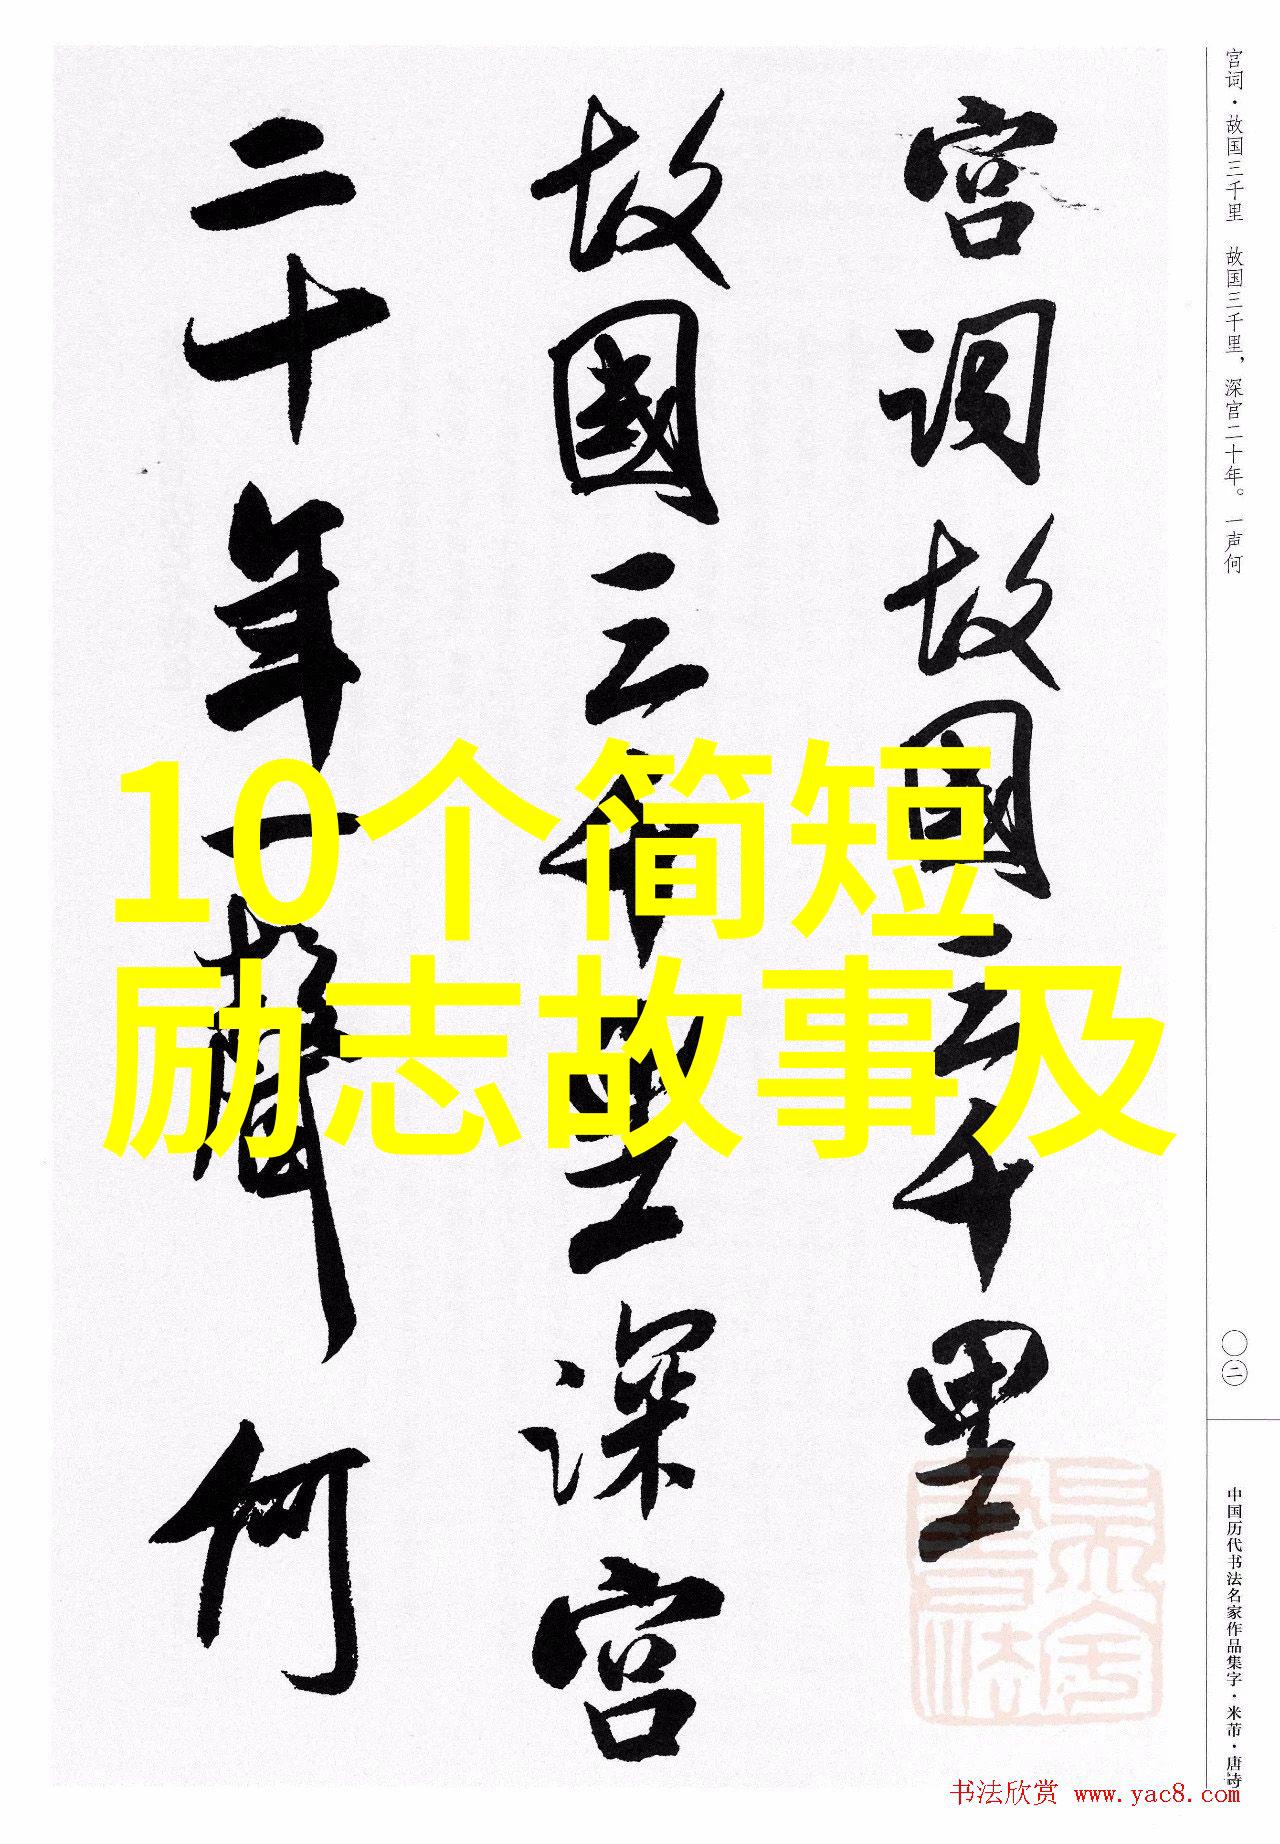 宫词·故国三千里　故国三千里，深宫二十年。一声何
宫词故國三千里
故國三千里深宫
二十年一聲何
10个简短
励志故事及
〇二
中国历代书法名家作品集字·米芾·唐诗
书法欣赏 www.yac8.com